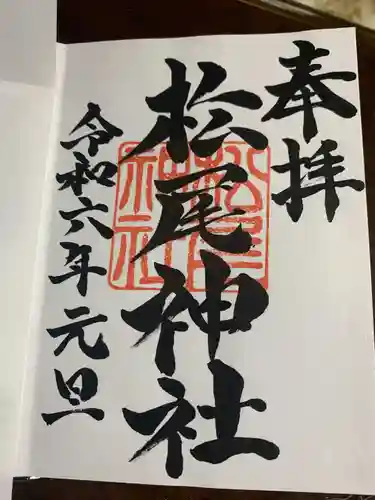 奉拝
松尾神社
松尾神社
令和六年元旦